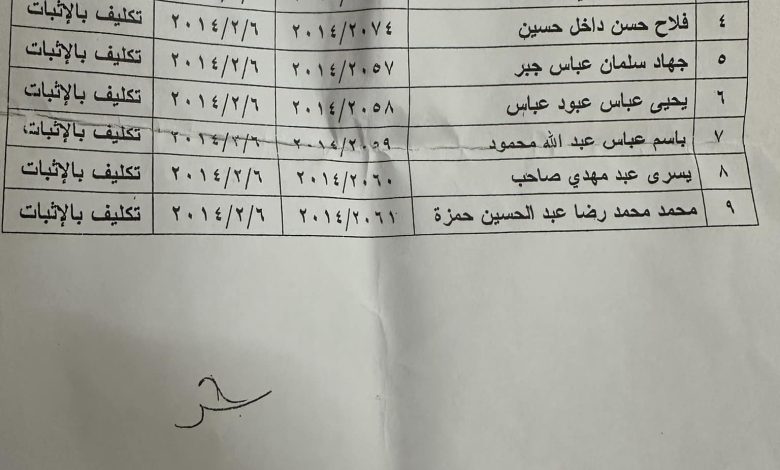 ٤ فلاح حسن داخل حسين ٢٠١٤/٢٠٧٤ ٢٠١٤/٢/٦ تكليف بالإثبات
٥ جهاد سلمان عباس جبر ٢٠١٤/٢٠٥٧ ٢٠١٤/٢/٦ تكليف بالإثبات
٦ يحيى عباس عبود عباس ٢٠١٤/٢٠٥٨ ٢٠١٤/٢/٦ تكليف بالإثبات
٧ باسم عباس عبد الله محمود ٢٠١٤/٢٠٥٩ ٢٠١٤/٢/٦ تكليف بالإثبات
٨ يسرى عبد مهدي صاحب ٢٠١٤/٢٠٦٠ ٢٠١٤/٢/٦ تكليف بالإثبات
٩ محمد محمد رضا عبد الحسين حمزة ٢٠١٤/٢٠٦١ ٢٠١٤/٢/٦ تكليف بالإثبات